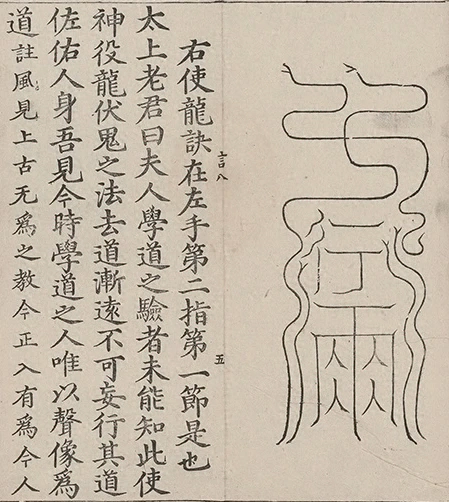 行雨
言八
五
右使龍訣在左手第二指第一節是也
太上老君曰夫人學道之驗者未能知此使
神役龍伏鬼之法去道漸遠不可妄行其道
佐佑人身吾見今時學道之人唯以聲像爲
道註風見上古无爲之教今正入有爲今人